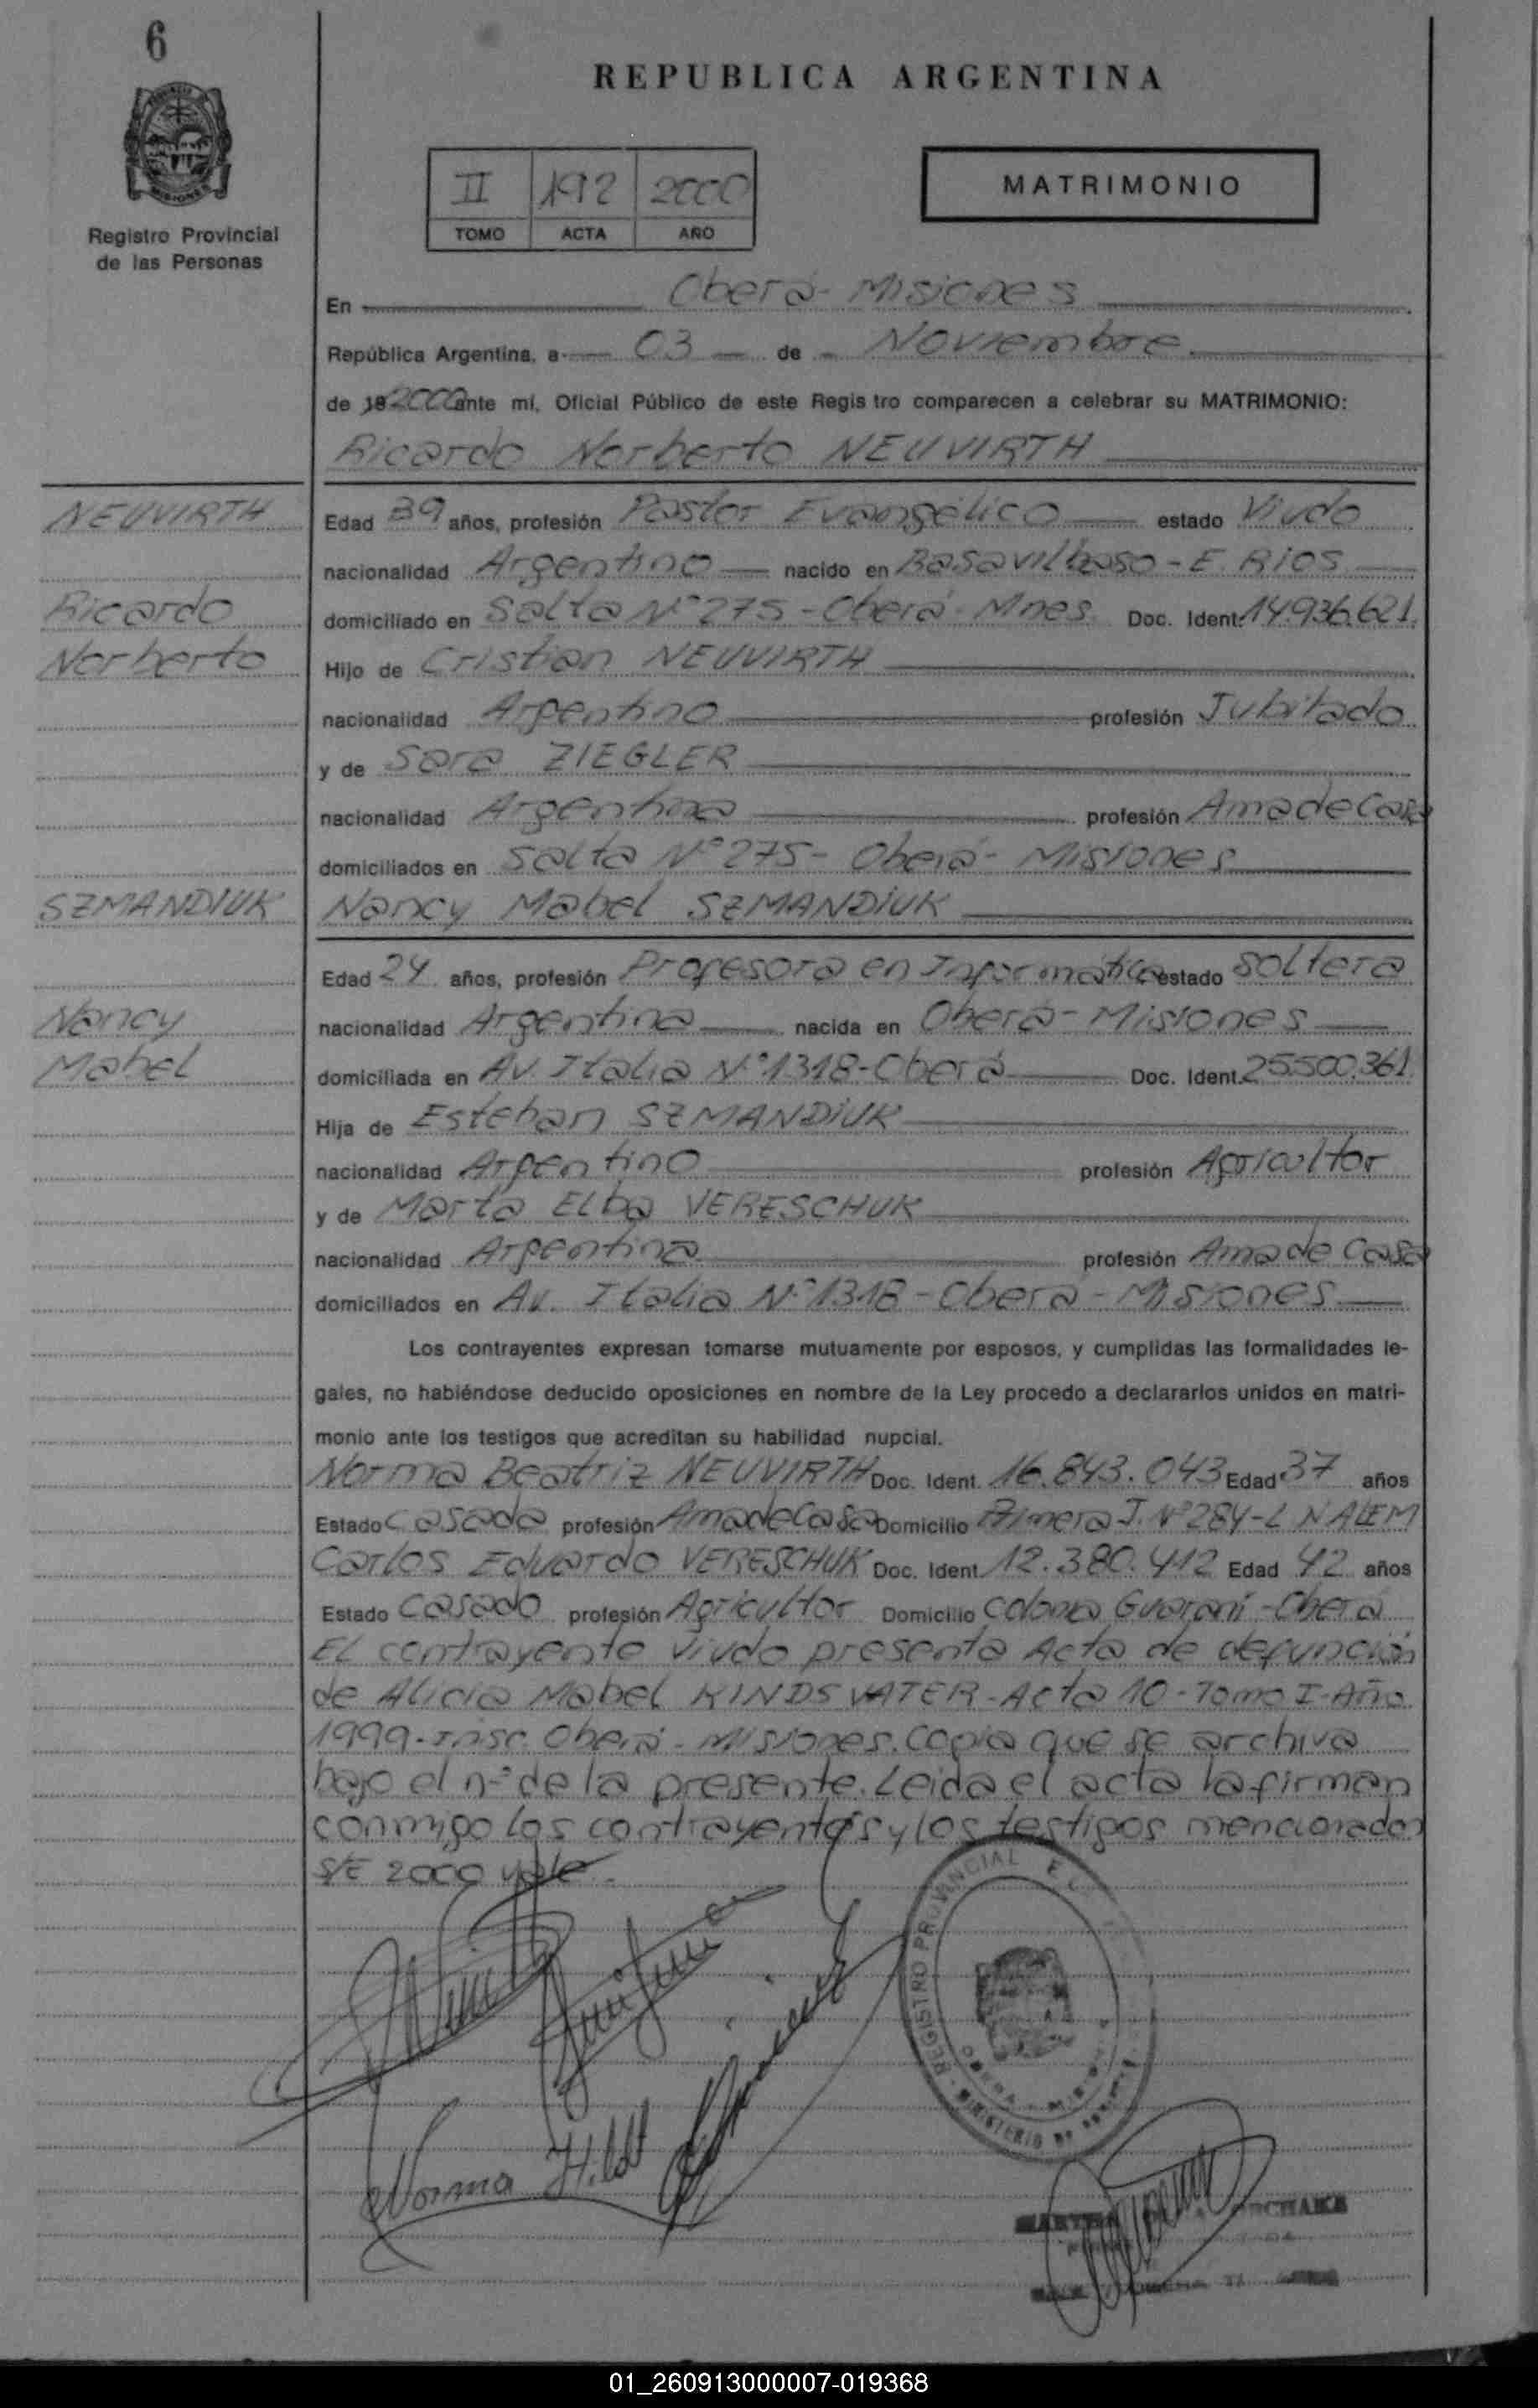 6
REPUBLICA ARGENTINA
MISIONES
Registro Provincial
de las Personas
II 192 2000
TOMO ACTA AÑO
MATRIMONIO
En Oberá - Misiones
República Argentina, a 03 de Noviembre
de 19 2000 ante mí, Oficial Público de este Regis tro comparecen a celebrar su MATRIMONIO:
Ricardo Norberto NEUVIRTH
NEUVIRTH
Edad 39 años, profesión Pastor Evangélico estado Viudo
nacionalidad Argentino nacido en Basavilbaso - E. RIOS
Ricardo
domiciliado en Salta N° 275 - Oberá - Mnes. Doc. Ident. 14.936.621.
Norberto
Hijo de Cristian NEUVIRTH
nacionalidad Argentino profesión Jubilado
y de Sara ZIEGLER
nacionalidad Argentina profesión Ama de Casa
domiciliados en Salta N° 275 - Oberá - Misiones
SZMANDIUK
Nancy Mabel SZMANDIUK
Edad 24 años, profesión Profesora en Informática estado Soltera
Nancy
nacionalidad Argentina nacida en Oberá - Misiones
Mabel
domiciliada en Av. Italia N° 1318 - Oberá Doc. Ident. 25.500.361
Hija de Esteban SZMANDIUK
nacionalidad Argentino profesión Agricultor
y de Marta Elba VERESCHUK
nacionalidad Argentina profesión Ama de Casa
domiciliados en Av. Italia N° 1318 - Oberá - Misiones
Los contrayentes expresan tomarse mutuamente por esposos, y cumplidas las formalidades le-
gales, no habiéndose deducido oposiciones en nombre de la Ley procedo a declararlos unidos en matri-
monio ante los testigos que acreditan su habilidad nupcial.
Norma Beatriz NEUVIRTH Doc. Ident. 16.843.043 Edad 37 años
Estado Casada profesión Ama de Casa Domicilio Primera J. N° 284 - L N ALEM
Carlos Eduardo VERESCHUK Doc. Ident. 12.380.412 Edad 42 años
Estado Casado profesión Agricultor Domicilio Colonia Guaraní - Oberá
El contrayente viudo presenta Acta de defunción
de Alicia Mabel KINDSVATER - Acta 10 - Tomo I - Año
1999 - Insc. Oberá - Misiones. Copia que se archiva
bajo el n° de la presente. Leida el acta la firman
conmigo los contrayentes y los testigos mencionados
S/E 2000 vale.
REGISTRO PROVINCIAL
MINISTERIO
Norma Hildt
01_260913000007-019368